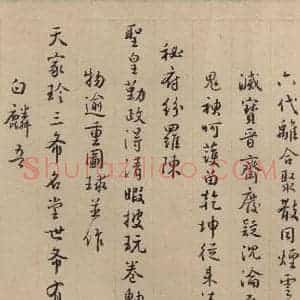 六代離合聚散同煙雲
滅寶晉齋廢跡沈淪
鬼神呵護由乾坤從来
秘府紛羅陳
聖皇勤政得清暇披玩卷軸
物逾重圖球並作
天家珍三希名堂世希有
白麟吾